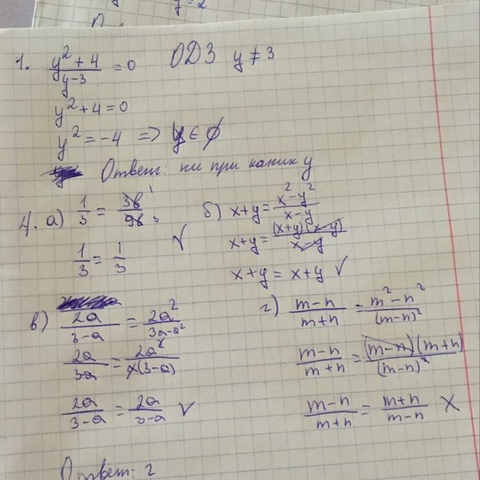 1. (y²+4)/(y-3) = 0 ОДЗ y ≠ 3
y²+4=0
y² = -4 => y ∈ ∅
Ответ: ни при каких y
4. а) 1/3 = 3b/9b
1/3 = 1/3 ✓
б) x+y = (x²-y²)/(x-y)
x+y = (x+y)(x-y)/(x-y)
x+y = x+y ✓
в) 2a/(3-a) = 2a²/(3a-a²)
2a/3a = 2a²/(a(3-a))
2a/(3-a) = 2a/(3-a) ✓
г) (m-n)/(m+n) = (m²-n²)/(m-n)²
(m-n)/(m+n) = (m-n)(m+n)/(m-n)²
(m-n)/(m+n) = (m+n)/(m-n) X
Ответ: г